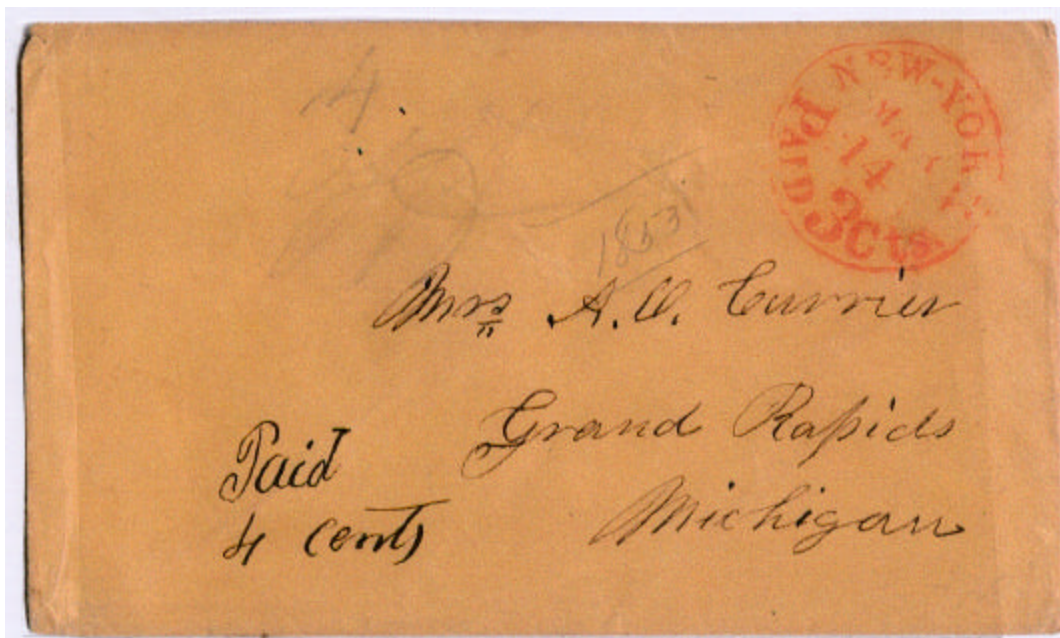 PAID NEW-YORK
MAY
14
3 Cts
1853
Mrs A. O. Currier
Grand Rapids
Michigan
Paid
4 Cents